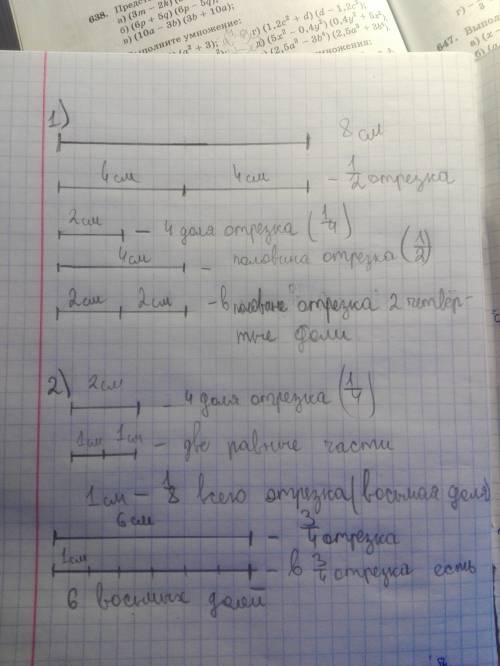 638. Предст
а) (3m − 2k)(
б) (6p + 5q)(6p − 5q);
в) (10a − 3b)(3b + 10a);
г) (1,2c² + d)(d − 1,2c²);
д) (5x² − 0,4y³)(0,4y³ + 5x²);
(2,5a³ − 3b⁴)(2,5a³ + 3b⁴)
полните умножение:
(a² + 3);
647. Выпол
а) (x −
1)
8 см
4 см 4 см - 1/2 отрезка
2 см - 4 доля отрезка (1/4)
4 см - половина отрезка (1/2)
2 см 2 см - в половине отрезка 2 четвёр-
тые доли
2) 2 см
- 4 доля отрезка (1/4)
1 см 1 см - две равные части
1 см - 1/8 всего отрезка (восьмая доля)
6 см - 3/4 отрезка
1 см - в 3/4 отрезка есть
6 восьмых долей